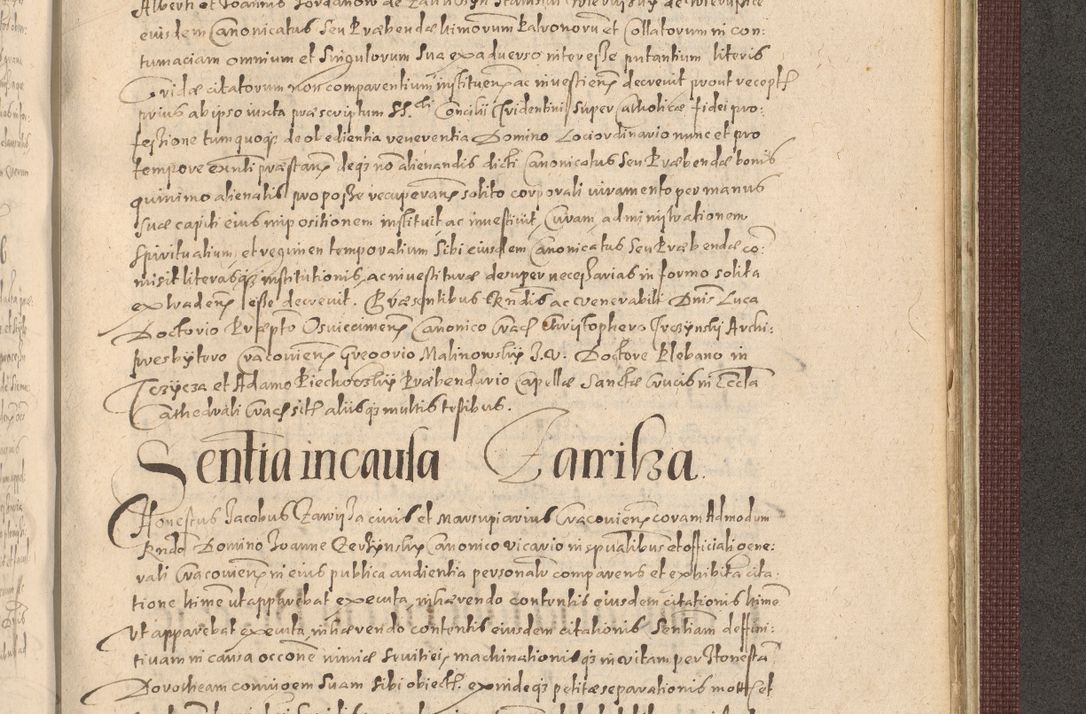 Alberti et Joannis Jordanow de
eiusdem Canonicatus Seu Præbendæ ltimorum Patronorum et Collatorum in con:
tumaciam omnium et Singulorum Sua ex adverso interesse putantium literis
Cridæ citatorum non comparentium instituen ac investien decrevit prout recepta
prius ab ipso iuxta præscriptum SS.cti Concilii Tridentini super Catholicæ fidei pro:
fessione tum quoque de obedientia reverentia Domino Lociordinario nunc et pro
tempore exnti præstan deque no alienandis dicti Canonicatus Seu Præbendæ bonis
quinimo alienatis pro posse recuperan solito corporali iuramento per manus
suæ capiti eius impositionem instituit ac investivit, Curam, administrationem
spiritualium, et regimen temporalium Sibi eiusdem Canonicatus Seu Præbendæ co:
misit literasque institutionis, ac investituræ desuper necessarias in formo solita
extraden esse decrevit. Præsentibus Rndis ac venerabili Dnis Luca
Doctorio Præpto Osviecimen Canonico Crac Christophero Trczynski Archi:
presbytero Cracovien Gregorio Malinowskÿ J. V. Doctore Plebano in
et Adamo Piechowskÿ Præbendario Capellæ Sanctæ Crucis in Eccla
Cathedrali Crac sit aliisque multis testibus.
Sentia in causa Zawisza.
Honestus Jacobus Zawisza civis et Marsupiarius Cracovien coram Admodum
Rndo Domino Joanne Canonico vicario in spualibus et officiali gene:
rali Cracovien in eius publica audientia personalr comparens et exhibita cita
tione ltime ut apparebat executa, inhærendo contentis eiusdem citationis ltime
ut apparebat executa, inhærendo contentis eiusdem citationis Sentiam deffini:
tivam in causa occone nimiæ sævitiei, machinationisque in vitam per Honestã
Dorotheam coniugem Suam Sibi obiect. exindeque petitæ separationis mott et